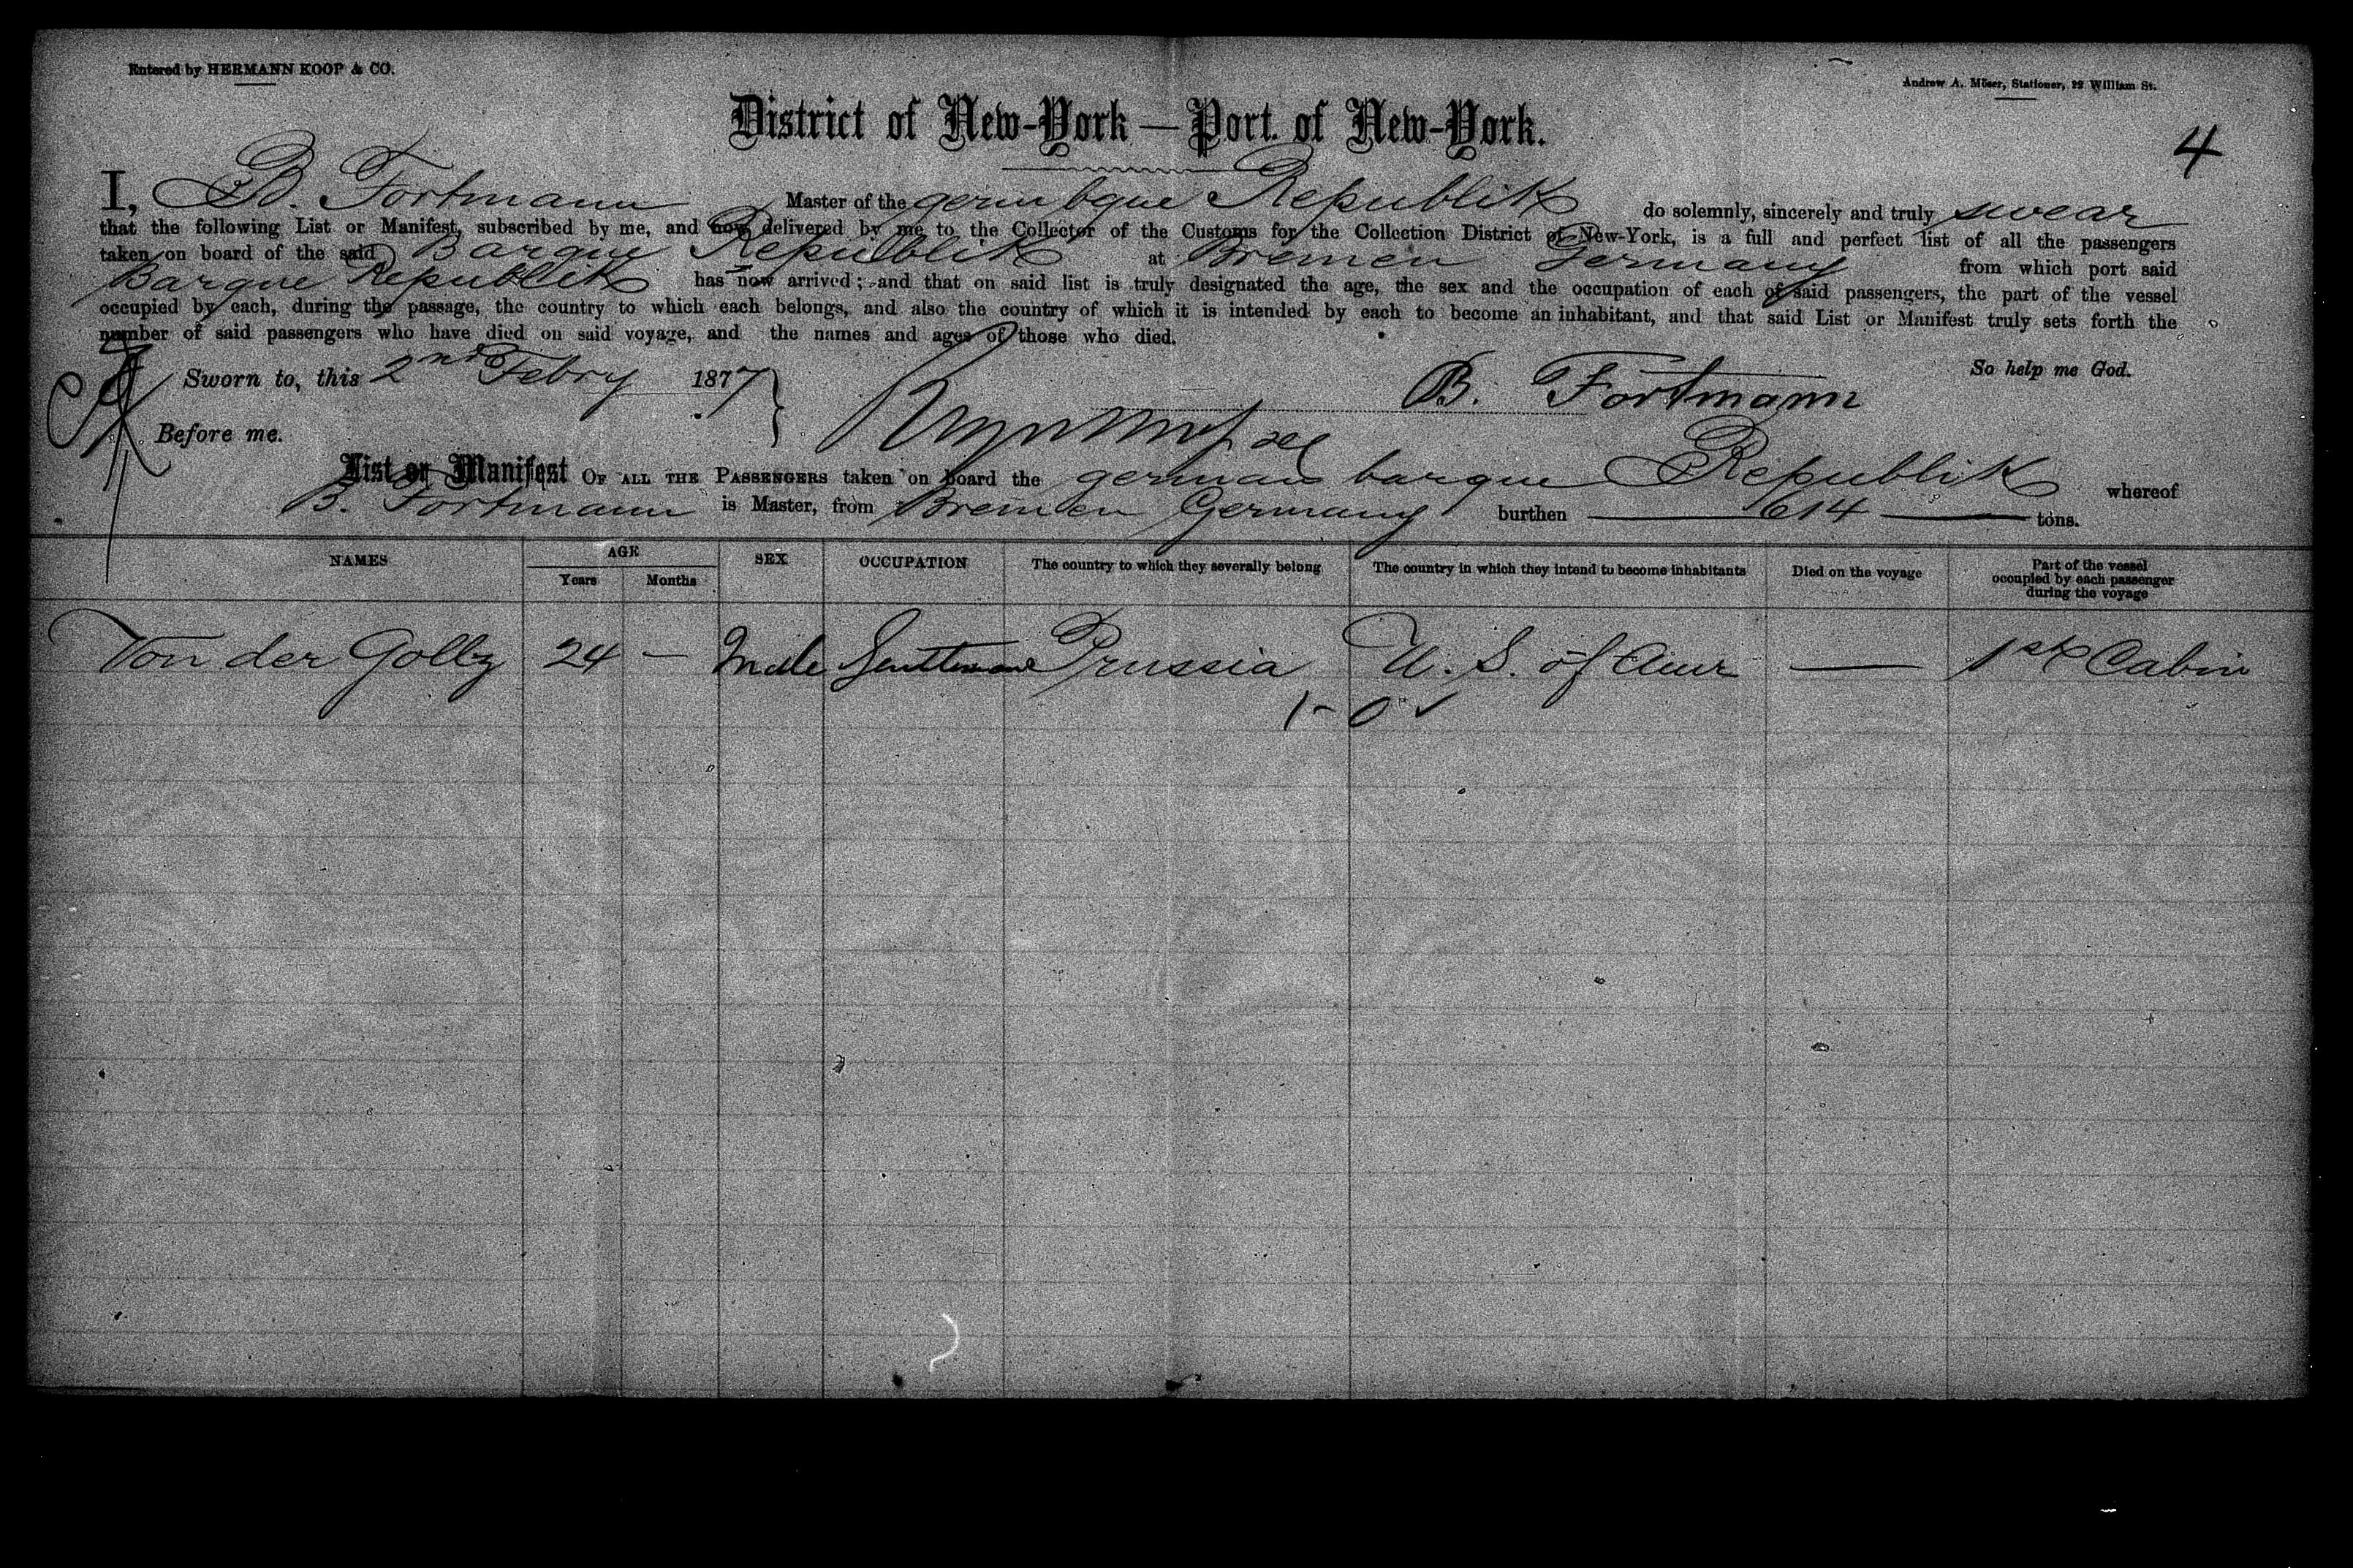 Entered by HERMANN KOOP & CO.
Andrew A. Möser, Stationer, 22 William St.
District of New-York — Port of New-York.
4
I, B. Fortmann Master of the germ bque Republik do solemnly, sincerely and truly swear
that the following List or Manifest, subscribed by me, and now delivered by me to the Collector of the Customs for the Collection District of New-York, is a full and perfect list of all the passengers
taken on board of the said Barque Republik at Bremen Germany from which port said
Barque Republik has now arrived; and that on said list is truly designated the age, the sex and the occupation of each of said passengers, the part of the vessel
occupied by each, during the passage, the country to which each belongs, and also the country of which it is intended by each to become an inhabitant, and that said List or Manifest truly sets forth the
number of said passengers who have died on said voyage, and the names and ages of those who died.
So help me God.
Sworn to, this 2nd Febry 1877
B. Fortmann
Before me.
List or Manifest OF ALL THE PASSENGERS taken on board the german barque Republik whereof
B. Fortmann is Master, from Bremen Germany burthen 614 tons.
NAMES AGE Years Months SEX OCCUPATION The country to which they severally belong The country in which they intend to become inhabitants Died on the voyage Part of the vessel occupied by each passenger during the voyage
Von der Goltz 24 — Male Gentleman Prussia U. S. of Amr — 1st Cabin
1 - 0 ✓